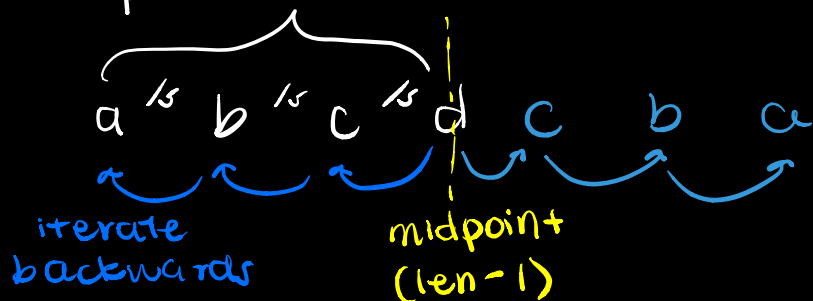 a /s b /s c /s d c b a
iterate
backwards
midpoint
(len-1)